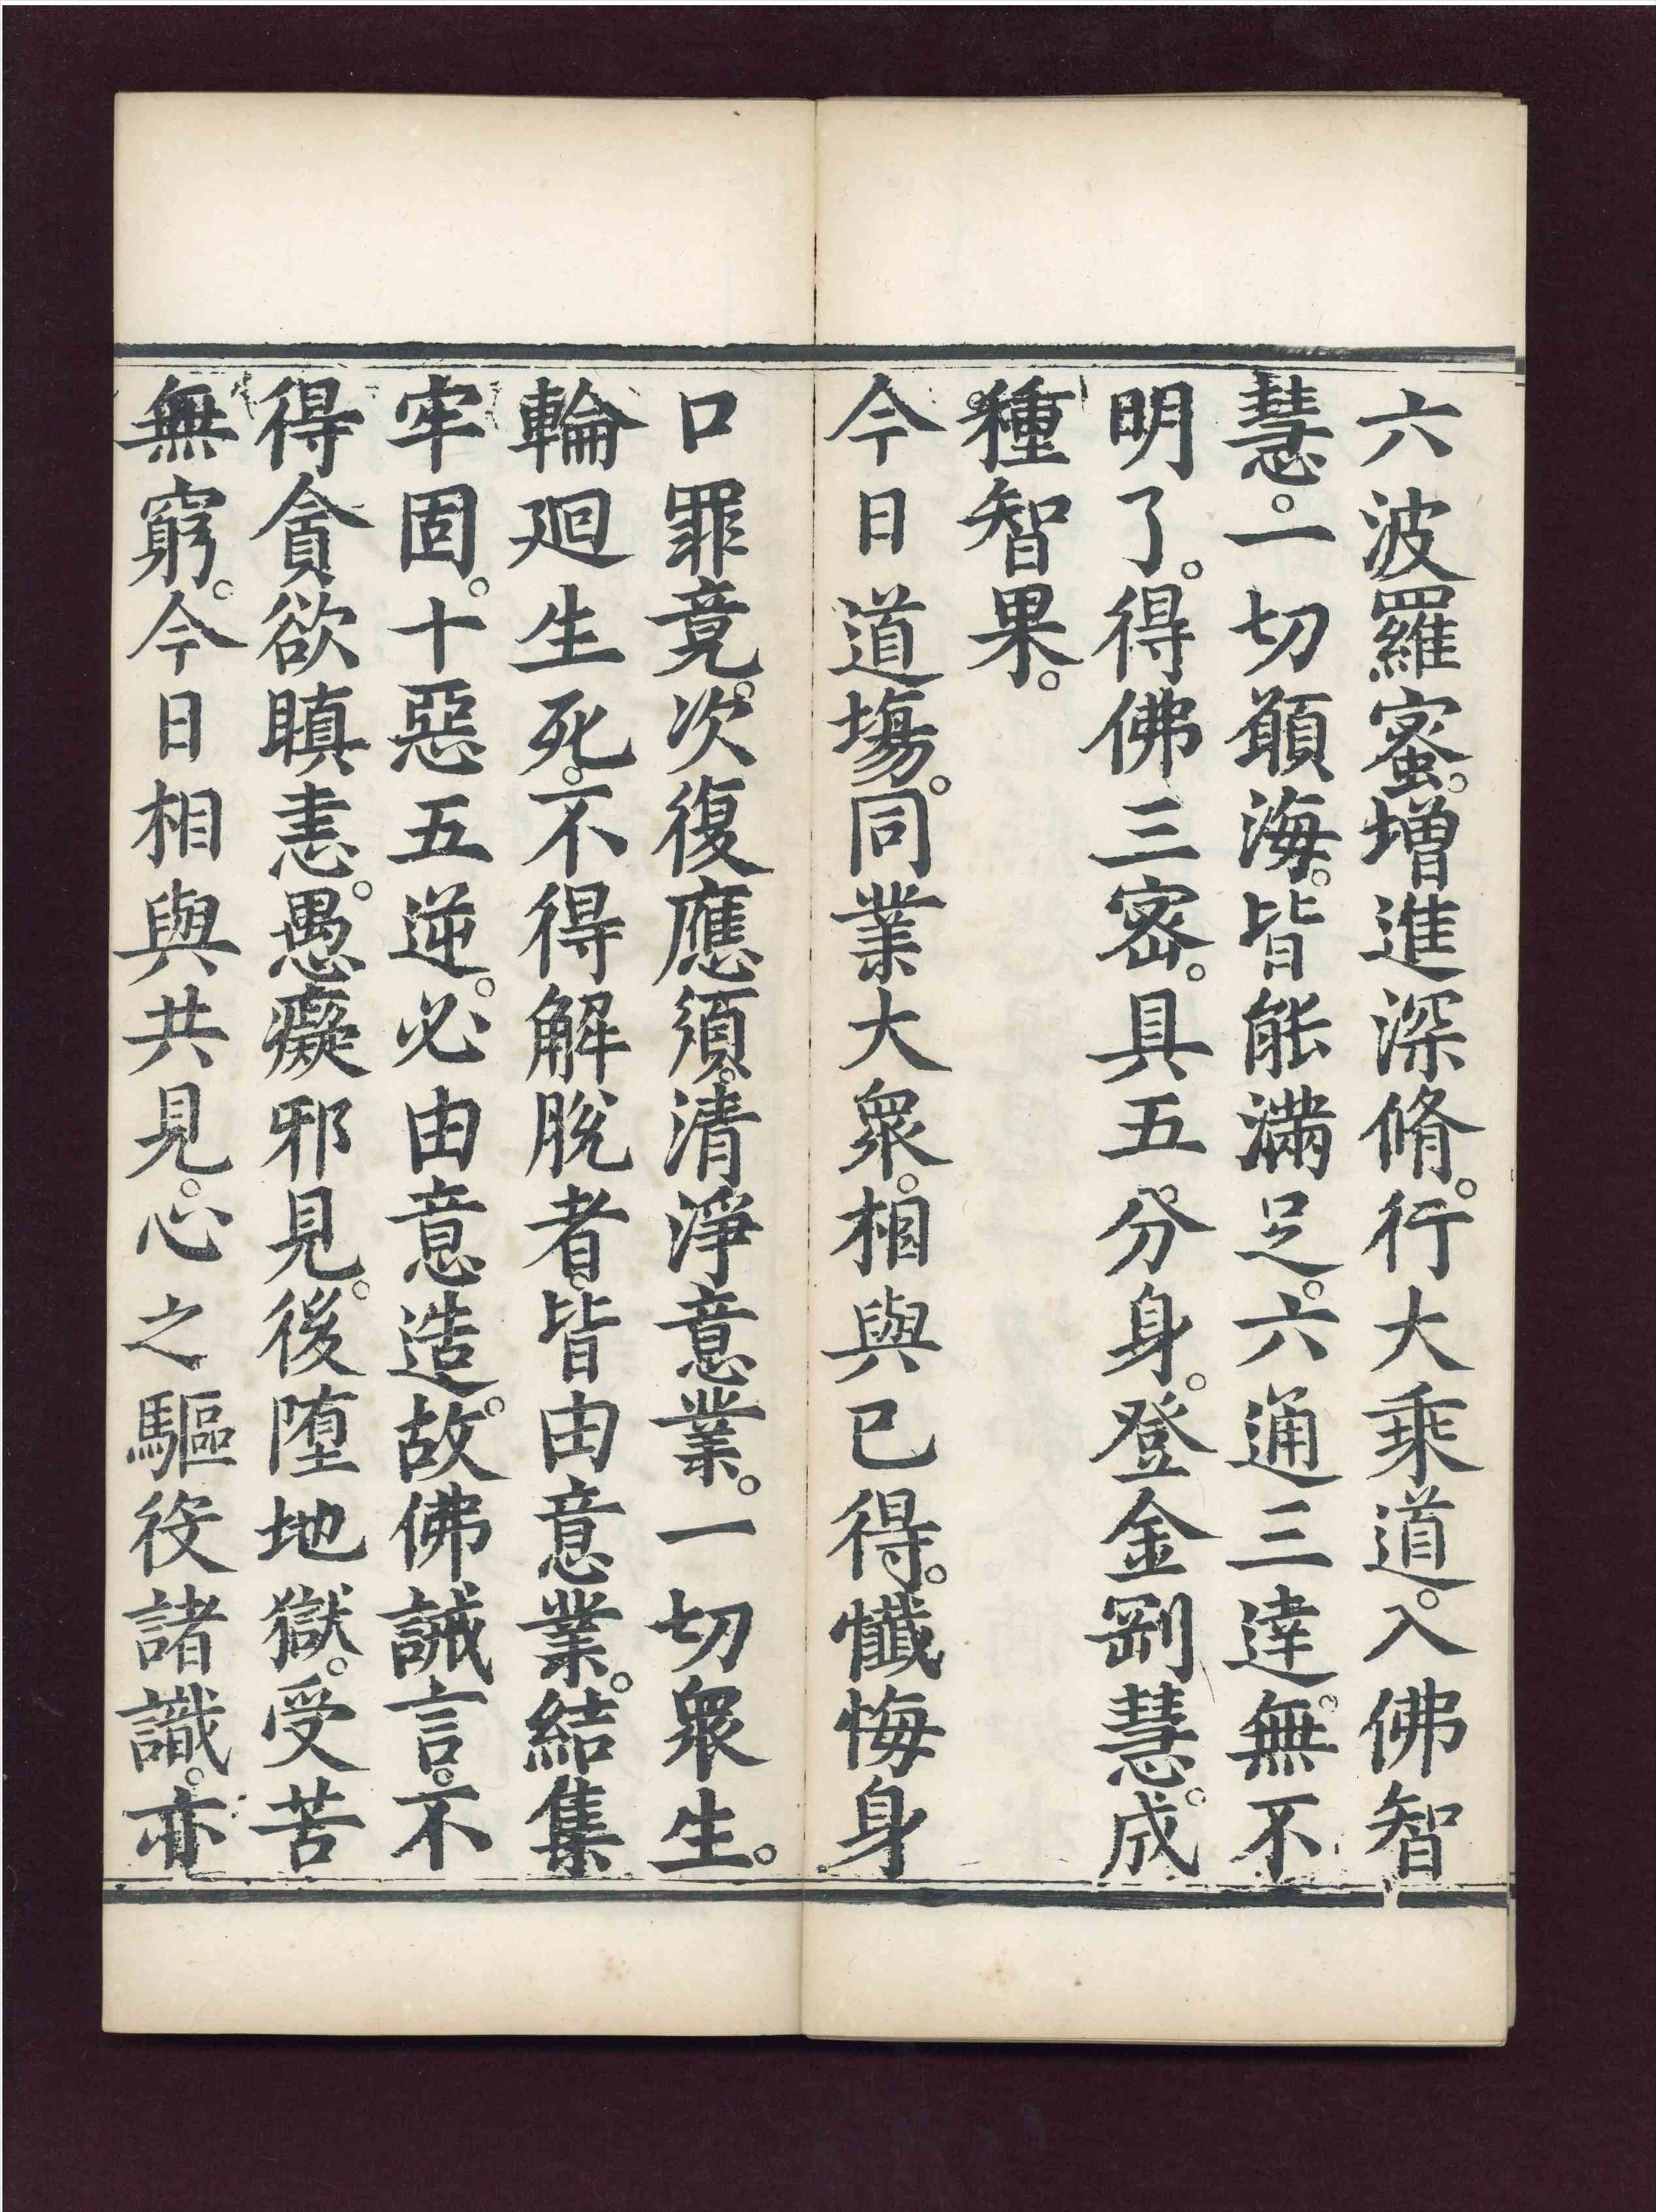 六波羅蜜。增進深脩。行大乘道。入佛智
慧。一切願海。皆能滿足。六通三達。無不
明了。得佛三密。具五分身。登金剛慧。成
種智果。
今日道塲。同業大衆。相與已得。懺悔身
口罪竟。次復應須。清淨意業。一切衆生。
輪廻生死。不得解脫者。皆由意業。結集
牢固。十惡五逆。必由意造。故佛誡言。不
得貪欲瞋恚。愚癡邪見。後墮地獄。受苦
無窮。今日相與共見。心之驅役諸識。亦